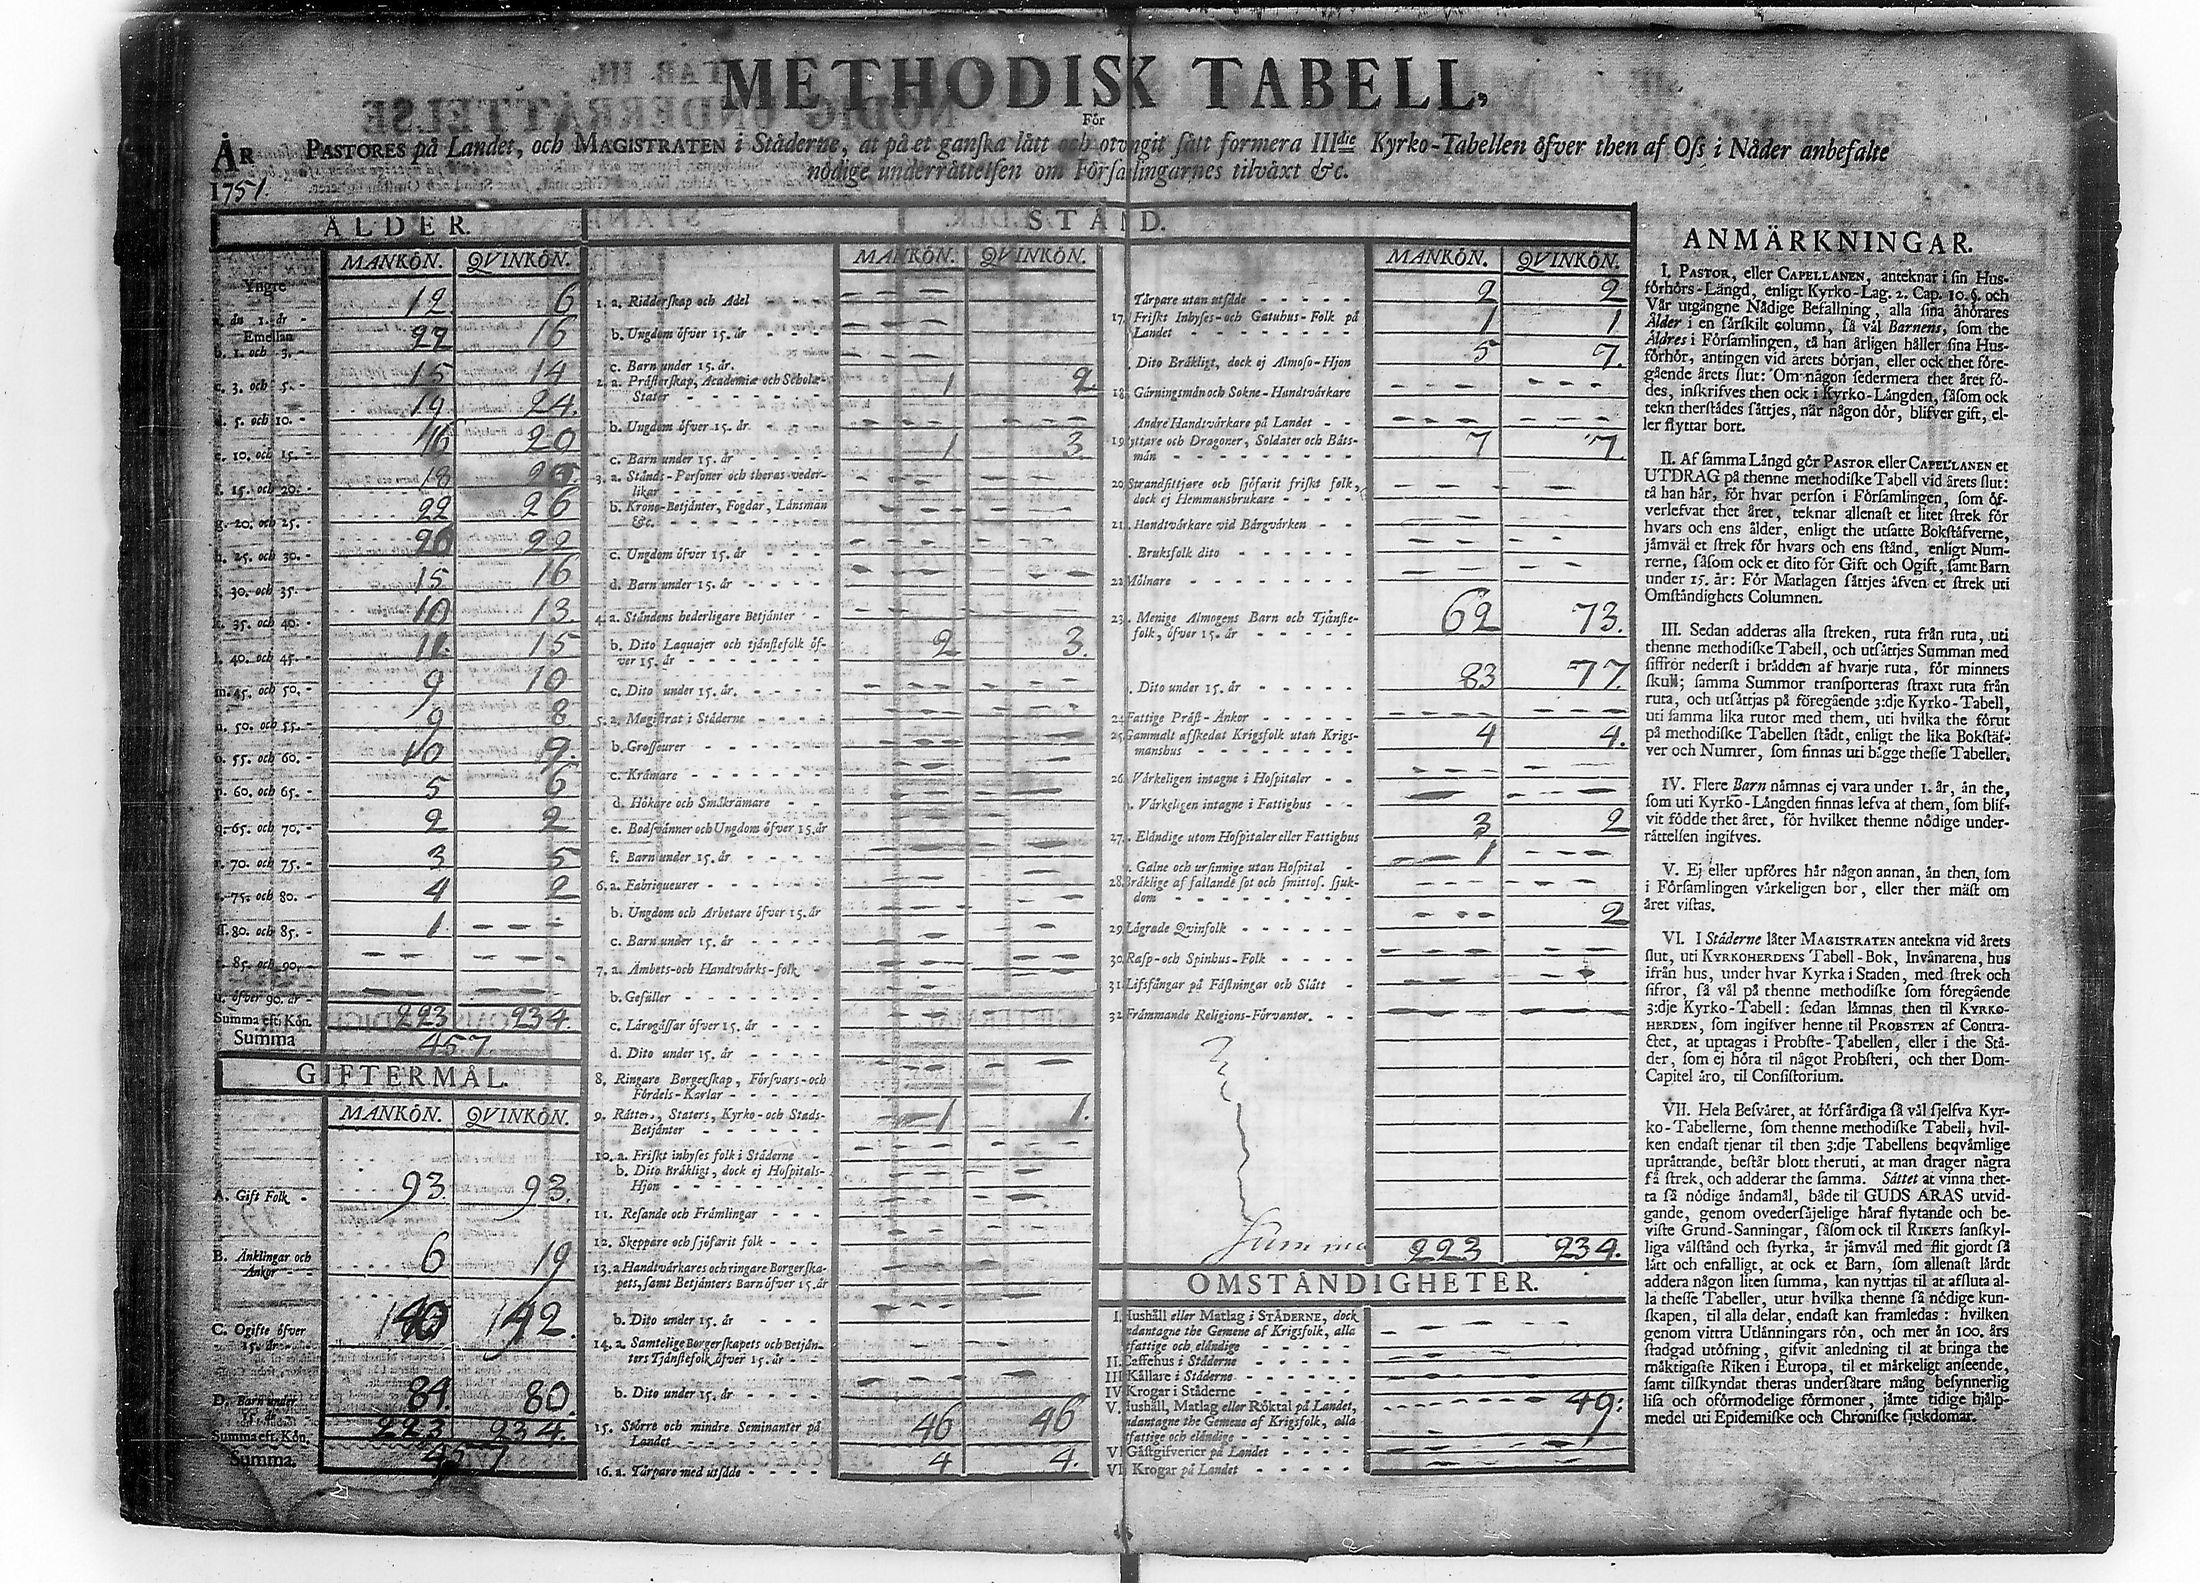 METHODISK TABELL,
För
ÅR PASTORES på Landet, och MAGISTRATEN i Städerne, at på et ganska lätt och otvngit sätt formera IIIdie Kyrko-Tabellen öfver then af Oss i Nåder anbefalte
1751. nödige underrättelsen om Församlingarnes tilväxt &c.
ÅLDER.
MANKÖN. QVINKÖN.
Yngre
a. än 1. år - 12 6
Emellan
b. 1. och 3. - 22 16
c. 3. och 5. - 15 14
d. 5. och 10. - 19 24.
e. 10. och 15. - 16 20
f. 15. och 20. -
18
g. 20. och 25. - 22 26
h. 25. och 30. - 20 22
i. 30. och 35. - 15 16
k. 35. och 40. - 10 13
l. 40. och 45. - 11. 15
m. 45. och 50. - 9 10
n. 50. och 55. - 9 8
o. 55. och 60. - 10 9.
p. 60. och 65. - 5 6
q. 65. och 70. - 2 2
r. 70. och 75. - 3 5
s. 75. och 80. - 4 2
ss. 80. och 85. - 1. - - -
t. 85. och 90. - - - - - - -
u. öfver 90. år -
Summa eft. Kön. 223 234.
Summa 457
GIFTERMÅL.
MANKÖN. QVINKÖN.
A. Gift Folk - 93. 93.
B. Änklingar och
Änkor - - 6 19
C. Ogifte öfver
15. år - - 142.
D. Barn under
15. år 84. 80.
Summa eft. Kön. 223 234.
Summa. 457
STÅND.
MANKÖN. QVINKÖN.
1. a. Ridderskap och Adel
b. Ungdom öfver 15. år - - - -
c. Barn under 15. år.
2. a. Prästerskap, Academiæ och Scholæ-
Stater - - - - - - - 1 2.
b. Ungdom öfver 15. år - - - -
c. Barn under 15. år - - - - 1 3
3. a. Stånds-Personer och theras veder-
likar - - - - - - - -
b. Krono-Betjänter, Fogdar, Länsmän
&c. - - - - - - - -
c. Ungdom öfver 15. år - - - -
d. Barn under 15. år - - - -
4. a. Ståndens hederligare Betjänter -
b. Dito Laquajer och tjänstefolk öf-
ver 15. år - - - - - - 2 3.
c. Dito under 15. år. - - - -
5. a. Magistrat i Städerne - - - -
b. Grosseurer - - - - - -
c. Krämare - - - - - -
d. Hökare och Småkrämare - -
e. Bodsvänner och Ungdom öfver 15. år
f. Barn under 15. år - - - -
6. a. Fabriqueurer - - - - - -
b. Ungdom och Arbetare öfver 15. år
c. Barn under 15. år - - - -
7. a. Ämbets-och Handtvärks-folk
b. Gesäller - - - - - -
c. Läregåssar öfver 15. år - - -
d. Dito under 15. år - - - -
8. Ringare Borgerskap, Försvars-och
Fördels-Karlar - - - - -
9. Rätte., Staters, Kyrko-och Stads-
Betjänter - - - - - - 1 1.
10. a. Friskt inhyses folk i Städerne -
b. Dito Bräkligt, dock ej Hospitals-
Hjon - - - - - - -
11. Resande och Främlingar - - -
12. Skeppare och sjöfarit folk - - -
13. a. Handtvärkares och ringare Borgerska-
pets, samt Betjänters Barn öfver 15. år
b. Dito under 15. år - - - -
14. a. Samtelige Borgerskapets och Betjän-
ters Tjänstefolk öfver 15. år - -
b. Dito under 15. år - - - -
15. Större och mindre Seminanter på
Landet - - - - - - - 46 46
16. a. Torpare med utsäde - - - - 4 4.
MANKÖN. QVINKÖN.
Torpare utan utsäde - - - - - 2 2
17. Friskt Inhyses-och Gatuhus-Folk på
Landet - - - - - - - 1 1
Dito Bräkligt, dock ej Almoso-Hjon 5 7.
18. Gärningsmän och Sokne-Handtvärkare
Andre Handtvärkare på Landet - -
19. Ryttare och Dragoner, Soldater och Båts-
män - - - - - - - - 7 7.
20. Strandsittjare och sjöfarit friskt folk,
dock ej Hemmansbrukare - - - -
21. Handtvärkare vid Bärgvärken - -
Bruksfolk dito - - - - - -
22. Mölnare - - - - - - -
23. Menige Almogens Barn och Tjänste-
folk, öfver 15. år - - - - - 62 73.
Dito under 15. år - - - - - 83 77.
24. Fattige Präst-Änkor - - - - -
25. Gammalt afskedat Krigsfolk utan Krigs-
manshus - - - - - - - 4 4.
26. Värkeligen intagne i Hospitaler - -
Värkeligen intagne i Fattighus - -
27. Eländige utom Hospitaler eller Fattighus 3 2
Galne och ursinnige utan Hospital - 1 - - -
28. Bräklige af fallande sot och smittos. sjuk-
dom - - - - - - - - -
29. Lägrade Qvinfolk - - - - - - - - - 2
30. Rasp-och Spinhus-Folk - - - -
31. Lifsfångar på Fästningar och Slått -
32. Främmande Religions-Förvanter. - -
Summa 223 234.
OMSTÄNDIGHETER.
I. Hushåll eller Matlag i STÄDERNE, dock
undantagne the Gemene af Krigsfolk, alla
fattige och eländige - - - - -
II. Caffehus i Städerne - - - - - -
III. Källare i Städerne - - - - - -
IV. Krogar i Städerne - - - - - -
V. Hushåll, Matlag eller Röktal på Landet,
undantagne the Gemene af Krigsfolk, alla
fattige och eländige - - - - - 49.
VI. Gästgifverier på Landet - - - -
VI. Krogar på Landet - - - - - -
ANMÄRKNINGAR.
I. PASTOR, eller CAPELLANEN, anteknar i sin Hus-
förhörs-Längd, enligt Kyrko-Lag. 2. Cap. 10. §. och
Vår utgångne Nådige Befallning, alla sina åhörares
Ålder i en särskilt column, så väl Barnens, som the
Äldres i Församlingen, tå han årligen håller sina Hus-
förhör, antingen vid årets början, eller ock thet före-
gående årets slut: Om någon sedermera thet året fö-
des, inskrifves then ock i Kyrko-Längden, såsom ock
tekn therstädes sättjes, när någon dör, blifver gift, el-
ler flyttar bort.
II. Af samma Längd gör PASTOR eller CAPELLANEN et
UTDRAG på thenne methodiske Tabell vid årets slut:
tå han här, för hvar person i Församlingen, som öf-
verlefvat thet året, teknar allenast et litet strek för
hvars och ens ålder, enligt the utsatte Bokstäfverne,
jämväl et strek för hvars och ens stånd, enligt Num-
rerne, såsom ock et dito för Gift och Ogift, samt Barn
under 15. år: För Matlagen sättjes äfven et strek uti
Omständighets Columnen.
III. Sedan adderas alla streken, ruta från ruta, uti
thenne methodiske Tabell, och utsättjes Summan med
siffror nederst i brädden af hvarje ruta, för minnets
skull; samma Summor transporteras straxt ruta från
ruta, och utsättjas på föregående 3:dje Kyrko-Tabell,
uti samma lika rutor med them, uti hvilka the förut
på methodiske Tabellen städt, enligt the lika Bokstäf-
ver och Numrer, som finnas uti bägge thesse Tabeller.
IV. Flere Barn nämnas ej vara under 1. år, än the,
som uti Kyrko-Längden finnas lefva af them, som blif-
vit födde thet året, för hvilket thenne nödige under-
rättelsen ingifves.
V. Ej eller upföres här någon annan, än then, som
i Församlingen värkeligen bor, eller ther mäst om
året vistas.
VI. I Städerne låter MAGISTRATEN antekna vid årets
slut, uti KYRKOHERDENS Tabell-Bok, Invånarena, hus
ifrån hus, under hvar Kyrka i Staden, med strek och
sifror, så väl på thenne methodiske som föregående
3:dje Kyrko-Tabell: sedan lämnas then til KYRKO-
HERDEN, som ingifver henne til PROBSTEN af Contra-
ctet, at uptagas i Probste-Tabellen, eller i the Stä-
der, som ej höra til något Probsteri, och ther Dom-
Capitel äro, til Consistorium.
VII. Hela Besväret, at förfärdiga så väl sjelfva Kyr-
ko-Tabellerne, som thenne methodiske Tabell, hvil-
ken endast tjenar til then 3:dje Tabellens beqvämlige
uprättande, består blott theruti, at man drager några
få strek, och adderar the samma. Sättet at vinna thet-
ta så nödige ändamål, både til GUDS ÄRAS utvid-
gande, genom ovedersäjelige häraf flytande och be-
viste Grund-Sanningar, såsom ock til RIKETS sanskyl-
liga välstånd och styrka, är jämväl med flit gjordt så
lätt och enfalligt, at ock et Barn, som allenast lärdt
addera någon liten summa, kan nyttjas til at afsluta al-
la thesse Tabeller, utur hvilka thenne så nödige kun-
skapen, til alla delar, endast kan framledas: hvilken
genom vittra Utlänningars rön, och mer än 100. års
stadgad utöfning, gifvit anledning til at bringa the
mäktigaste Riken i Europa, til et märkeligt anseende,
samt tilskyndat theras undersåtare mång besynnerlig
lisa och oförmodelige förmoner, jämte tidige hjälp-
medel uti Epidemiske och Chroniske sjukdomar.